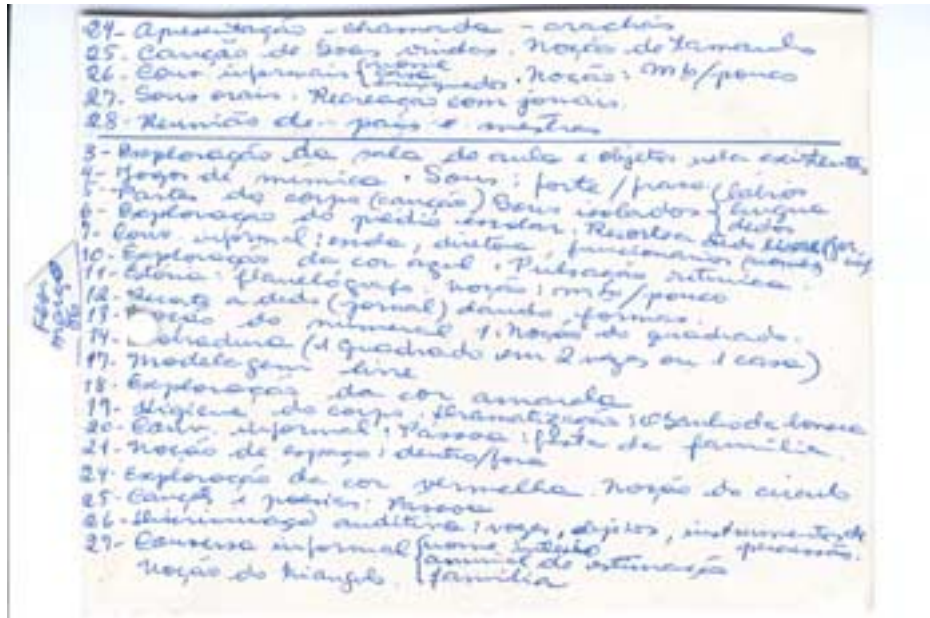 24- Apresentação - chamada - crachás
25. Canção de boas vindas. Noção de tamanho
26- Conv. informais {nome casa brinquedos. Noção: mto/pouco
27. Sons orais. Recreação com jornais.
28- Reunião de pais e mestres
3- Exploração da sala de aula e objetos nela existentes
4- Jogos de mímica. Sons: forte/fraco
5- Partes do corpo (canção) Sons isolados {lábios língua dedos
6- Exploração do prédio escolar. Recortes dedo livre
7- Conv. informal: escola, diretora, funcionários
10- Exploração da cor azul. Pulsação rítmica.
11- Estória: flanelógrafo. Noção: mto/pouco
12- Recorte a dedo (jornal) dando formas.
13- Noção do numeral 1. Noção do quadrado.
14- Dobradura (1 quadrado em 2 vezes ou 1 casa)
17- Modelagem livre
18- Exploração da cor amarela
19- Higiene do corpo: dramatização: o banho da boneca
20- Conv. informal: Páscoa: festa da família.
21- Noção de espaço: dentro/fora
24- Exploração da cor vermelha. Noção do círculo
25- Canções e poesias: Páscoa
26- Discriminação auditiva: vozes, objetos, instrumentos de percussão.
27- Conversa informal {nome inteiro animal de estimação família
Noção do triângulo.
Fev
Março